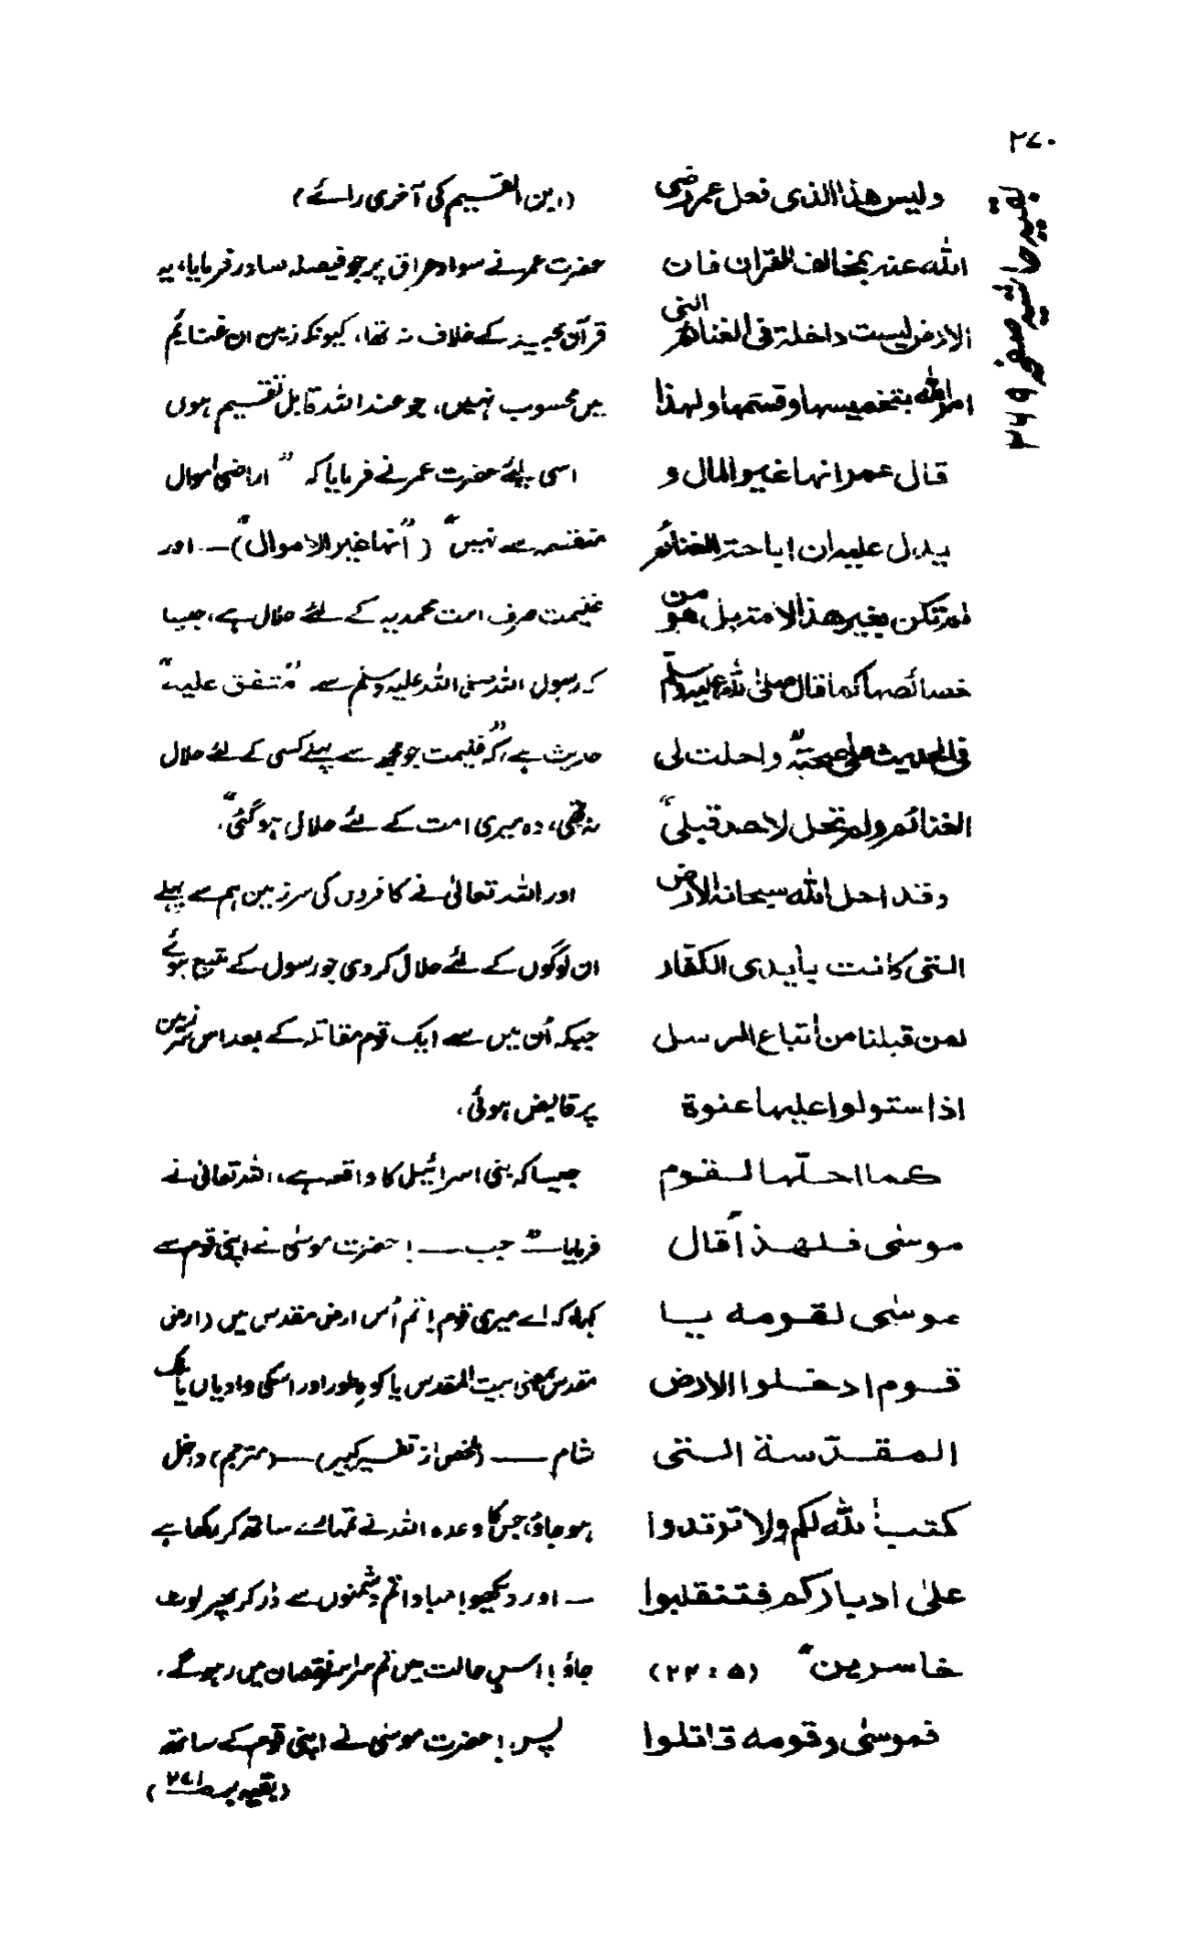 ۲۷۰
بقیہ حاشیہ صفحہ ۲۶۹
ولیس ھذا الذی فعل عمر رضی
اللہ عنہ بمخالف للقران فان
الارض لیست داخلة فی الغنائم التی
امر اللہ بتخمیسھا وقسمتھا ولھذا
قال عمر انھا غیر المال و
یدل علیہ ان اباحة الغنائم
لم تکن بغیر ھذا الامة بل ھو من
خصائصھا کما قال صلی اللہ علیہ وسلم
فی الحدیث علی صحتہ "واحلت لی
الغنائم ولم تحل لاحد قبلی"
وقد احل اللہ سبحانہ الارض
التی کانت بأیدی الکفّار
لمن قبلنا من أتباع الرسل
اذا ستولوا علیھا عنوة
کما احلّھا لقوم
موسٰی فلھذا "قال
موسٰی لقومہ یا
قوم ادخلوا الارض
المقدّسة التی
کتب اللہ لکم ولا ترتدوا
علیٰ ادبارکم فتنقلبوا
خاسرین" (۵ : ۲۴)
فموسٰی وقومہ قاتلوا
(ابن القیم کی آخری رائے)
حضرت عمر نے سواد عراق پر جو فیصلہ صادر فرمایا، یہ
قرآن مجید کے خلاف نہ تھا، کیونکہ زمین ان غنائم
میں محسوب نہیں، جو عند اللہ قابل تقسیم ہوں
اسی لئے حضرت عمر نے فرمایا کہ "اراضی اموال
منقسمہ سے نہیں" ("انھا غیر الاموال") ـــ اور
غنیمت صرف امت محمدیہ کے لئے حلال ہے، جیسا
کہ رسول اللہ صلی اللہ علیہ وسلم سے "متفق علیہ"
حدیث ہے، کہ "غنیمت جو مجھ سے پہلے کسی کے لئے حلال
نہ تھی، وہ میری امت کے لئے حلال ہو گئی"۔
اور اللہ تعالیٰ نے کافروں کی سرزمین ہم سے پہلے
ان لوگوں کے لئے حلال کر دی جو رسول کے متبع ہوئے
جبکہ اُن میں سے ایک قوم مقاتلہ کے بعد اس سرزمین
پر قابض ہوئی،
جیسا کہ بنی اسرائیل کا واقعہ ہے، اللہ تعالیٰ نے
فرمایا " جب ـــ ! حضرت موسیٰ نے اپنی قوم سے
کہا، کہ اے میری قوم! تم اُس ارض مقدس میں (ارض
مقدس بمعنی بیت المقدس یا کوہ طور اور اسکی وادیاں یا ملک
شام ـــ (ملخص از تفسیر کبیر) ـــ (مترجم) داخل
ہو جاؤ، جس کا وعدہ اللہ نے تمہارے ساتھ کر رکھا ہے
ـــ اور دیکھو! مبادا تم دشمنوں سے ڈر کر پھر لوٹ
جاؤ! اس حالت میں تم سراسر نقصان میں رہو گے،
پس! حضرت موسیٰ نے اپنی قوم کے ساتھ
(بقیہ بر صـ۲۷۱)